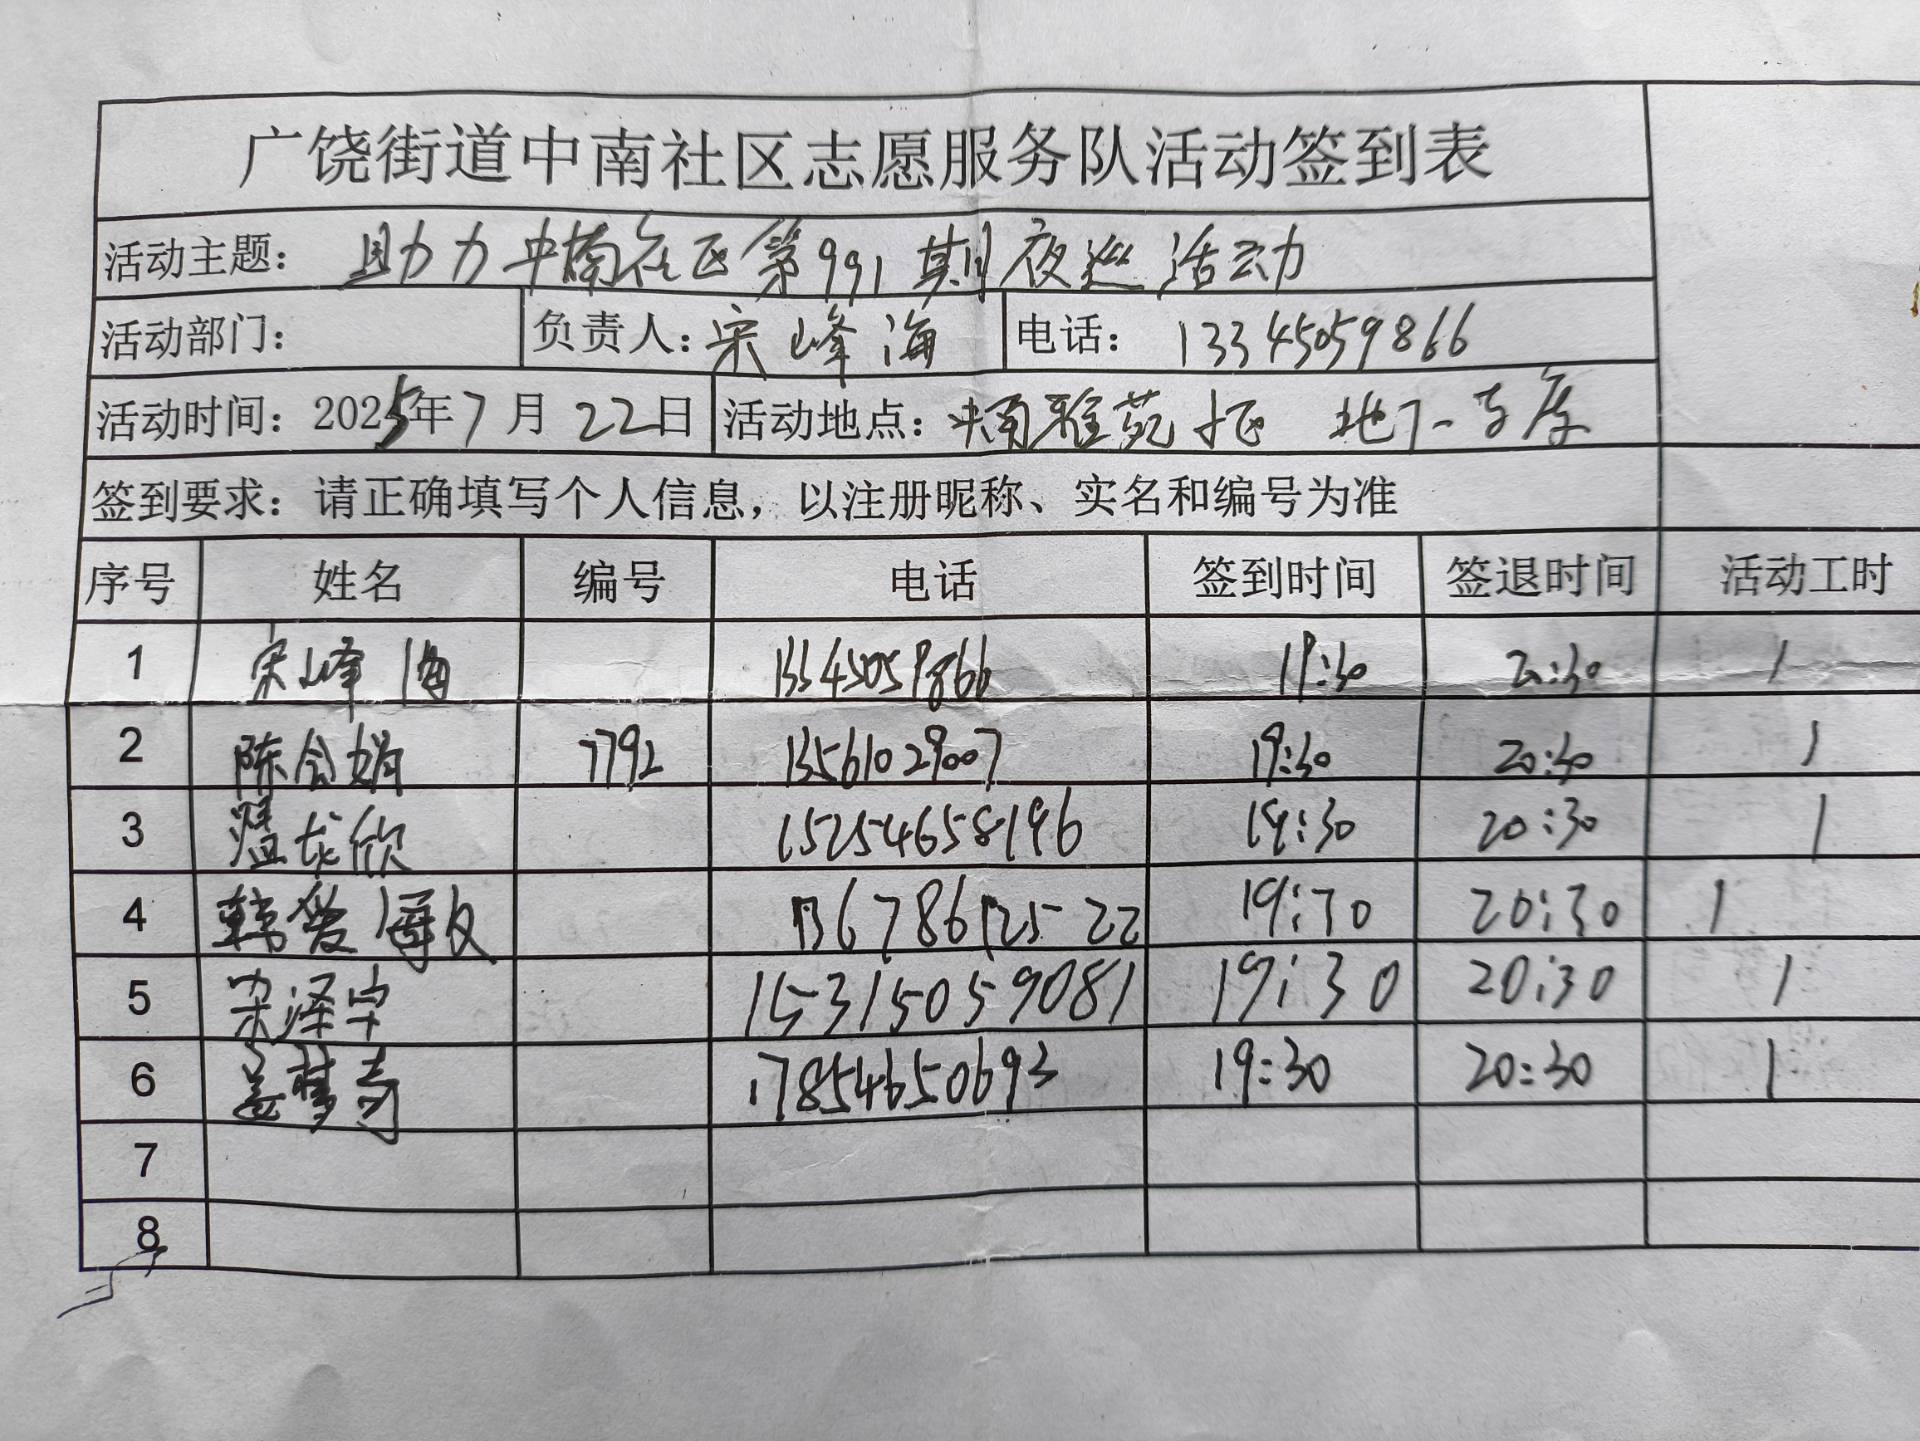 广饶街道中南社区志愿服务队活动签到表
活动主题：助力中南社区第991期夜巡活动
活动部门： 负责人：宋峰海 电话：13345059866
活动时间：2025年7月22日 活动地点：中南雅苑 地下车库
签到要求：请正确填写个人信息，以注册昵称、实名和编号为准
序号 姓名 编号 电话 签到时间 签退时间 活动工时
1 宋峰海 13345059866 19:30 20:30 1
2 陈会娟 7792 13561029007 19:30 20:30 1
3 15254658196 19:30 20:30 1
4 韩爱 19:30 20:30 1
5 宋泽宇 15315059081 19:30 20:30 1
6 盖梦奇 17854650693 19:30 20:30 1
7
8